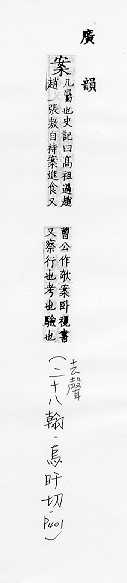 廣韻
案
几屬也史記曰高祖過趙
趙張敖自持案進食又
曹公作欹案卧視書
又察行也考也驗也
(去聲
二十八翰.烏旰切.P401)